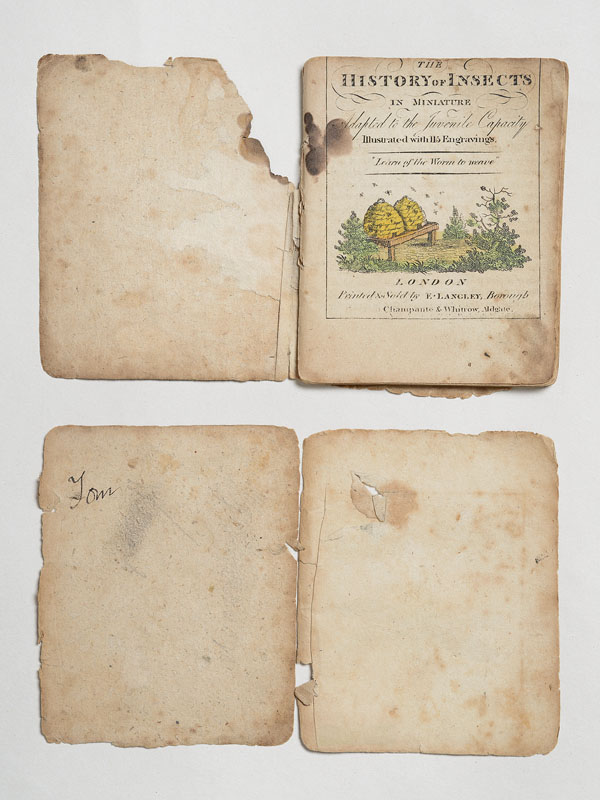 THE
HISTORY OF INSECTS
IN MINIATURE
Adapted to the Juvenile Capacity
Illustrated with 115 Engravings.
"Learn of the Worm to weave"
LONDON
Printed & Sold by E. LANGLEY, Borough
Champante & Whitrow, Aldgate.
Tom